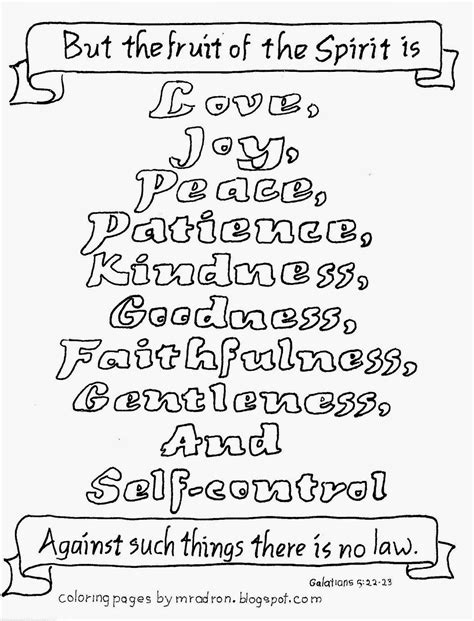 But the fruit of the Spirit is
Love,
Joy,
Peace,
Patience,
Kindness,
Goodness,
Faithfulness,
Gentleness,
And
Self-control
Against such things there is no law.
Galatians 5:22-23
coloring pages by mradron.blogspot.com